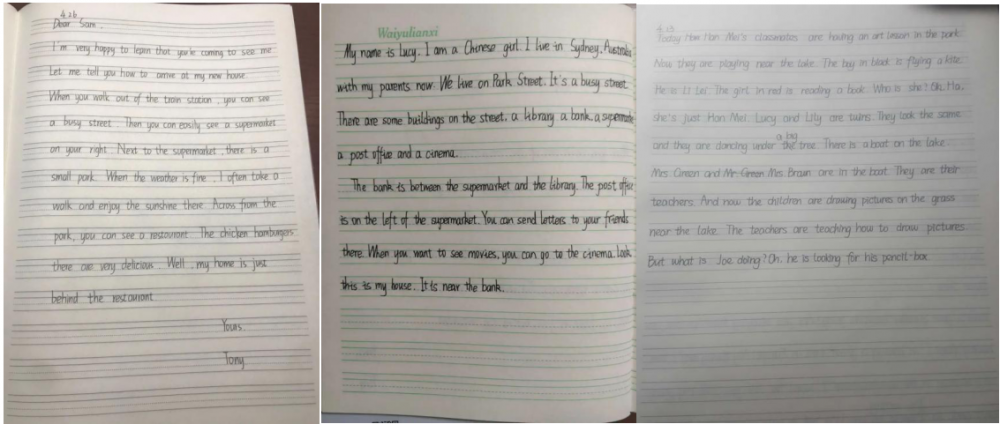 4.26
Dear Sam,
I'm very happy to learn that you're coming to see me
Let me tell you how to arrive at my new house.
When you walk out of the train station, you can see
a busy street. Then you can easily see a supermarket
on your right. Next to the supermarket, there is a
small park. When the weather is fine, I often take a
walk and enjoy the sunshine there. Across from the
park, you can see a restaurant. The chicken hamburgers
there are very delicious. Well, my home is just
behind the restaurant
Yours
Tony
Waiyulianxi
My name is Lucy. I am a Chinese girl. I live in Sydney, Australia
with my parents now. We live on Park Street. It's a busy street.
There are some buildings on the street, a library, a bank, a supermarke
a post office and a cinema.
The bank is between the supermarket and the library. The post office
is on the left of the supermarket. You can send letters to your friends
there. When you want to see movies, you can go to the cinema. Look,
this is my house. It is near the bank.
Today Han Mei's classmates are having an art lesson in the park.
Now they are playing near the lake. The boy in black is flying a kite.
He is Li Lei. The girl in red is reading a book. Who is she? Oh, Ha,
she's just Han Mei. Lucy and Lily are twins. They look the same
a big
and they are dancing under the tree. There is a boat on the lake.
Mrs Green and Mr Green Mrs Brown are in the boat. They are their
teachers. And now the children are drawing pictures on the grass
near the lake. The teachers are teaching how to draw pictures.
But what is Joe doing? Oh, he is looking for his pencil-box